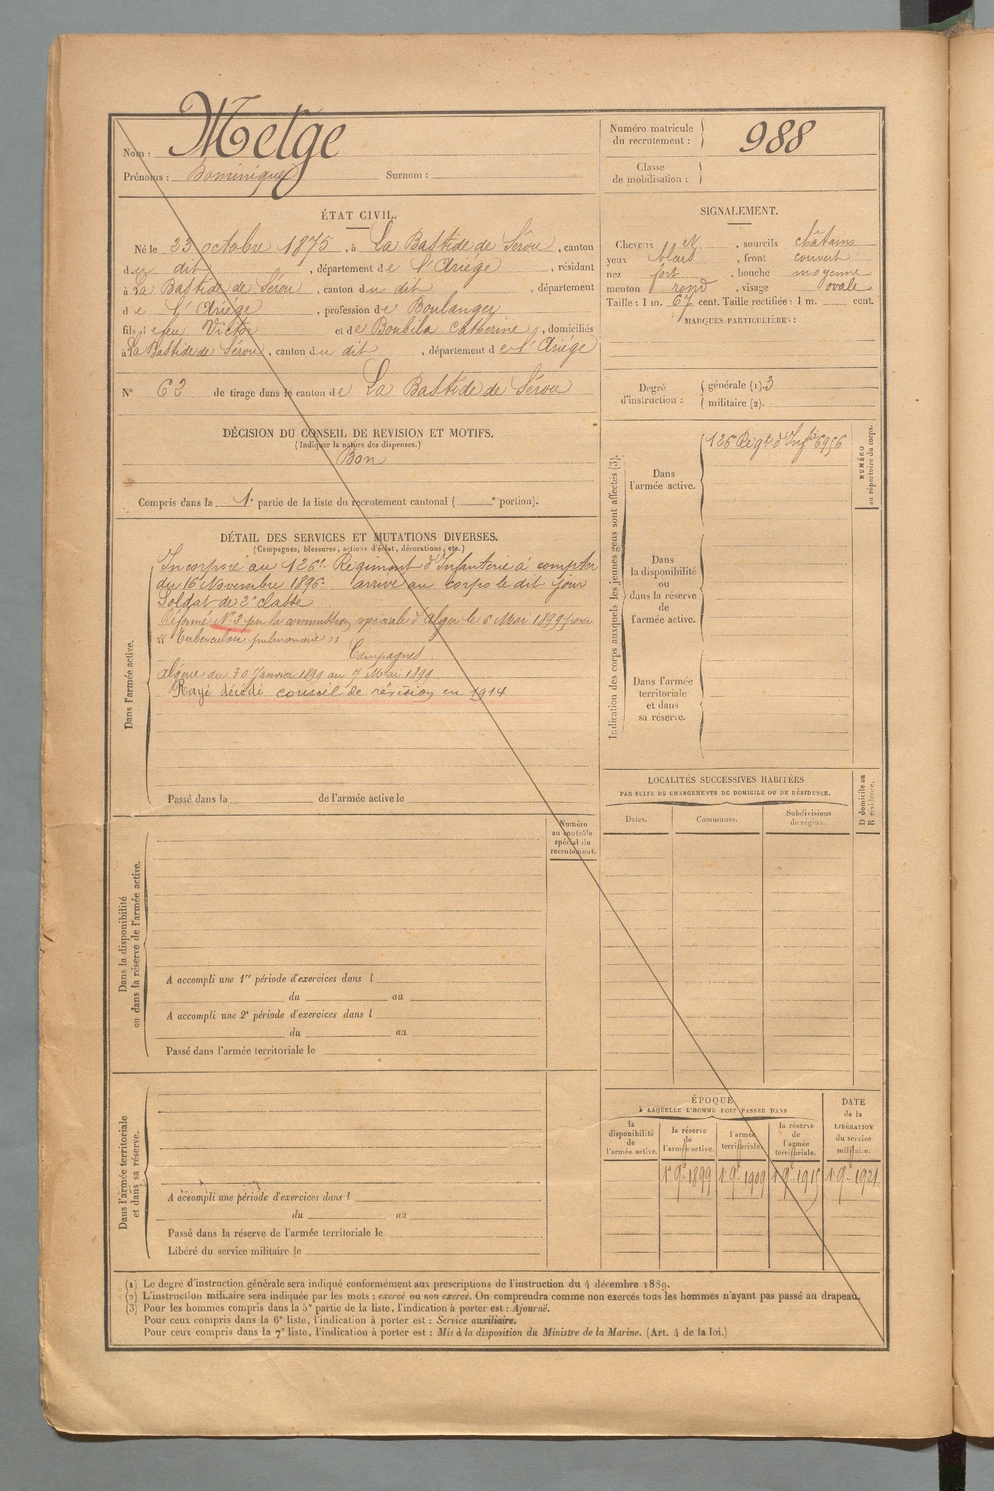 Nom : Metge
Prénoms : Dominique Surnom :
Numéro matricule du recrutement : 988
Classe de mobilisation :
ÉTAT CIVIL.
Né le 23 octobre 1875, à La Bastide de Sérou, canton
du dit, département de l'Ariège, résidant
à La Bastide de Sérou, canton du dit, département
de l'Ariège, profession de Boulanger
fils de feu Victor et de Boubila Catherine, domiciliés
à La Bastide de Sérou, canton du dit, département de l'Ariège
N° 62 de tirage dans le canton de La Bastide de Sérou
SIGNALEMENT.
Cheveux et, sourcils châtains
yeux bleus, front couvert
nez fort, bouche moyenne
menton rond, visage ovale
Taille : 1 m. 67 cent. Taille rectifiée : 1 m. cent.
MARQUES PARTICULIÈRES :
Degré d'instruction :
générale (1). 3
militaire (2).
DÉCISION DU CONSEIL DE REVISION ET MOTIFS.
(Indiquer la nature des dispenses.)
Bon
Compris dans la 1e partie de la liste du recrutement cantonal ( e portion).
DÉTAIL DES SERVICES ET MUTATIONS DIVERSES.
(Campagnes, blessures, actions d'éclat, décorations, etc.)
Dans l'armée active.
Incorporé au 126e Régiment d'Infanterie à compter
du 16 Novembre 1896. arrivé au corps le dit jour
Soldat de 2e classe
Réformé N° 2 par la commission spéciale d'Alger le 6 Mai 1899 pour
"Tuberculose pulmonaire"
Campagnes
Algérie du 30 Janvier 1899 au 7 Mai 1899
Rayé décédé conseil de révision en 1914
Passé dans la de l'armée active le
Indication des corps auxquels les jeunes gens sont affectés (3).
Dans l'armée active.
126 Régt d'Infie 6956
NUMÉRO au répertoire du corps.
Dans la disponibilité ou dans la réserve de l'armée active.
Dans l'armée territoriale et dans sa réserve.
LOCALITÉS SUCCESSIVES HABITÉES
PAR SUITE DE CHANGEMENTS DE DOMICILE OU DE RÉSIDENCE.
Dates. Communes. Subdivisions de région. D domicile ou R résidence.
Dans la disponibilité ou dans la réserve de l'armée active.
Numéro au contrôle spécial du recrutement.
A accompli une 1re période d'exercices dans l
du au
A accompli une 2e période d'exercices dans l
du au
Passé dans l'armée territoriale le
Dans l'armée territoriale et dans sa réserve.
A accompli une période d'exercices dans l
du au
Passé dans la réserve de l'armée territoriale le
Libéré du service militaire le
ÉPOQUE
À LAQUELLE L'HOMME DOIT PASSER DANS
la disponibilité de l'armée active.
la réserve de l'armée active.
l'armée territoriale.
la réserve de l'armée territoriale.
DATE de la LIBÉRATION du service militaire.
1er 9bre 1899 1er 9bre 1909 1er 9bre 1915 1er 9bre 1921
(1) Le degré d'instruction générale sera indiqué conformément aux prescriptions de l'instruction du 4 décembre 1889.
(2) L'instruction militaire sera indiquée par les mots : exercé ou non exercé. On comprendra comme non exercés tous les hommes n'ayant pas passé au drapeau.
(3) Pour les hommes compris dans la 5e partie de la liste, l'indication à porter est : Ajourné.
Pour ceux compris dans la 6e liste, l'indication à porter est : Service auxiliaire.
Pour ceux compris dans la 7e liste, l'indication à porter est : Mis à la disposition du Ministre de la Marine. (Art. 4 de la loi.)